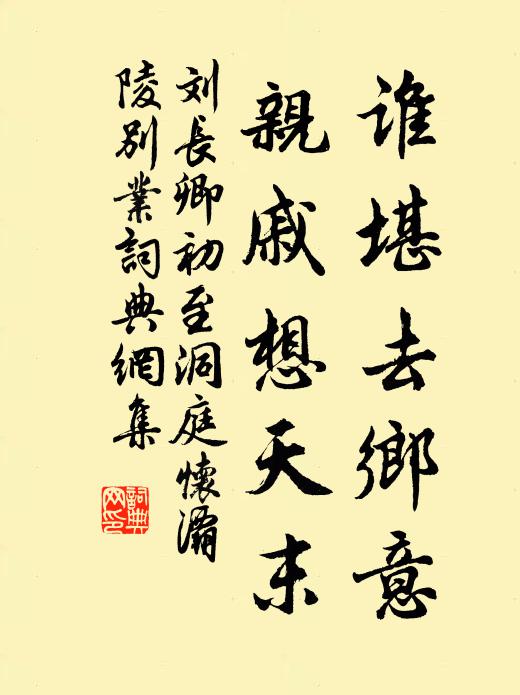 谁堪去鄉意
親戚想天末
刘長卿初至洞庭懷灞
陵别業詞典網集
詞典
网印